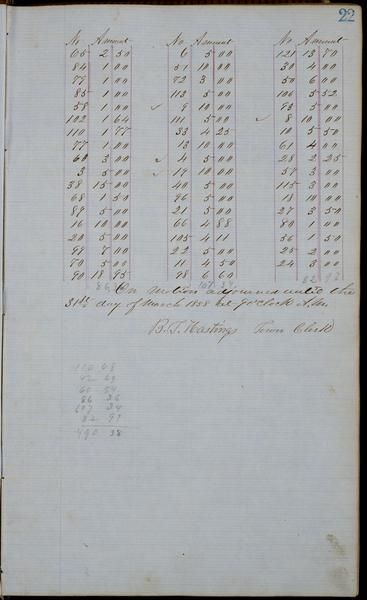 22
No Amount No Amount No Amount
65 2 50 6 5 00 121 13 70
84 1 00 51 10 00 30 4 00
77 1 00 72 3 00 50 6 00
85 1 00 113 5 00 106 5 52
58 1 00 9 10 00 93 5 00
102 1 64 101 5 00 8 10 00
110 1 77 33 4 25 10 5 50
77 1 00 13 10 00 61 4 00
60 3 00 4 5 00 28 2 25
3 5 00 19 10 00 57 3 00
38 15 00 40 5 00 115 3 00
68 1 50 96 5 00 18 10 00
89 5 00 21 5 00 27 3 50
16 10 00 66 4 88 80 1 00
20 5 00 105 4 11 36 1 50
99 7 00 22 5 00 25 2 00
70 5 00 14 4 50 24 3 00
90 18 95 98 6 60
107 34 82 97
On motion adjourned until the
31st day of March 1858 at 9 o'clock A.M.
B.T. Hastings Town Clerk
110 48
42 69
60 54
86 36
107 34
82 97
490 38